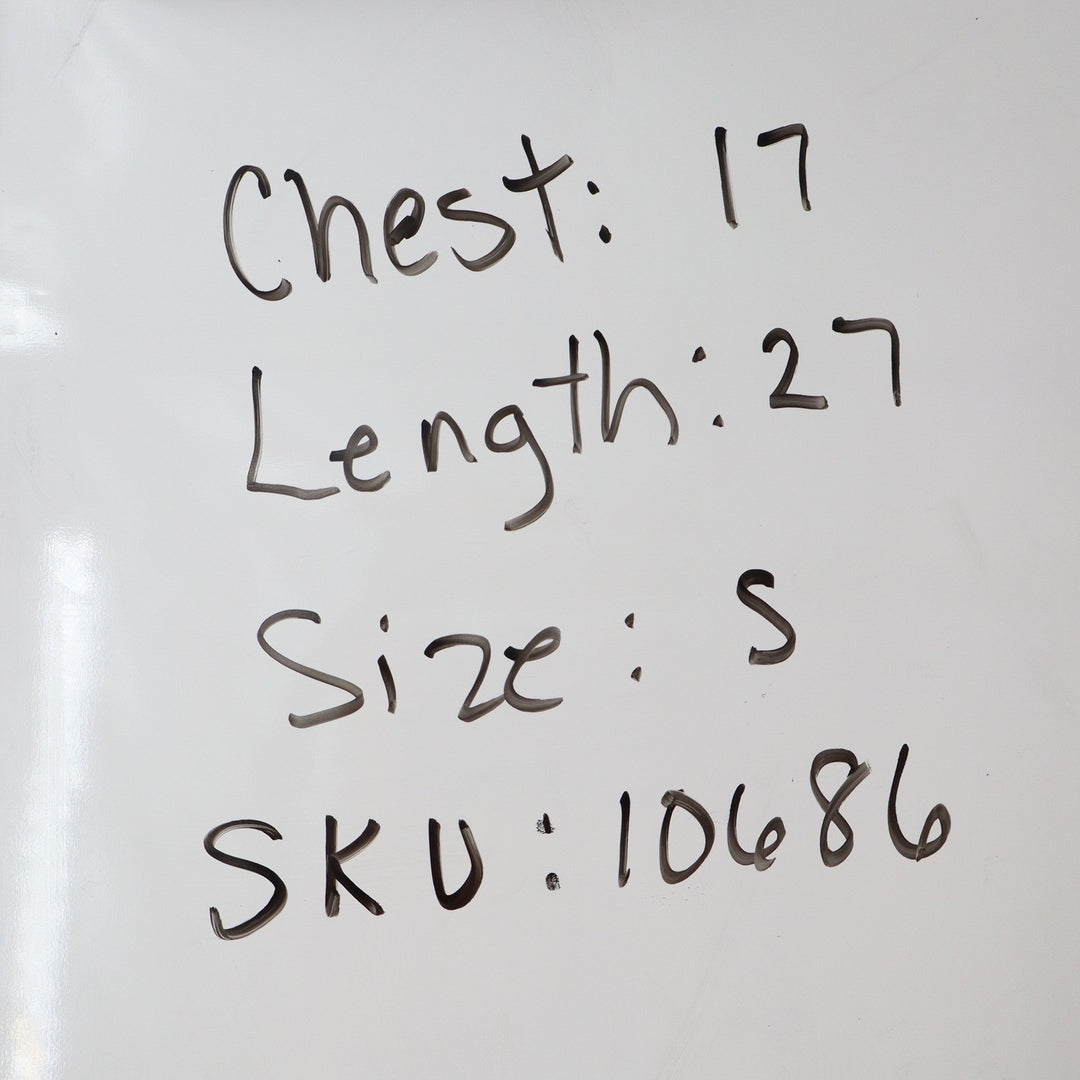 Chest: 17
Length: 27
Size: S
SKU: 10686